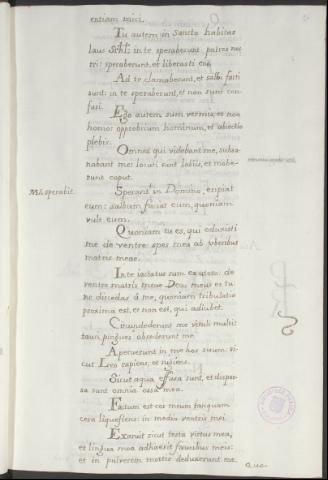 entiam mei.
Tu autem in Sancto habitas
laus Isrl: in te speraberunt patres nos-
tri: speraberunt, et liberasti eos.
Ad te clamaberunt, et salbi facti
sunt: in te speraberunt, et non sunt con-
fusi.
Ego autem sum vermis, et non
homo: opprobrium hominum, et abiectio
plebis.
Omnes qui videbant me, subsa-
nabant me: locuti sunt labiis, et mobe-
runt caput.
Ms. sperabit.
Sperant in Domino, eripiat
eum: salbum faciat eum, quoniam
vult eum.
Quoniam tu es, qui eduxisti
me de ventre: spes mea ab uberibus
matris meae.
In te iactatus sum ex utero: de
ventre matris meae Deus meus es tu:
ne discedas á me, quoniam tribulatio
proxima est, et non est, qui adiubet.
Circundederunt me vituli multi:
tauri pingues obsederunt me.
Aperuerunt in me hos suum: si-
cut Leo rapiens, et rugiens.
Sicut aqua effusa sunt, et disper-
sa sunt omnia ossa mea.
Factum est cor meum tanquam
cera liquefiens: in medio ventris mei.
Exaruit sicut testa virtus mea,
et lingua mea adhaesit faucibus meis:
et in pulverem mortis deduxerunt me.
Quo-